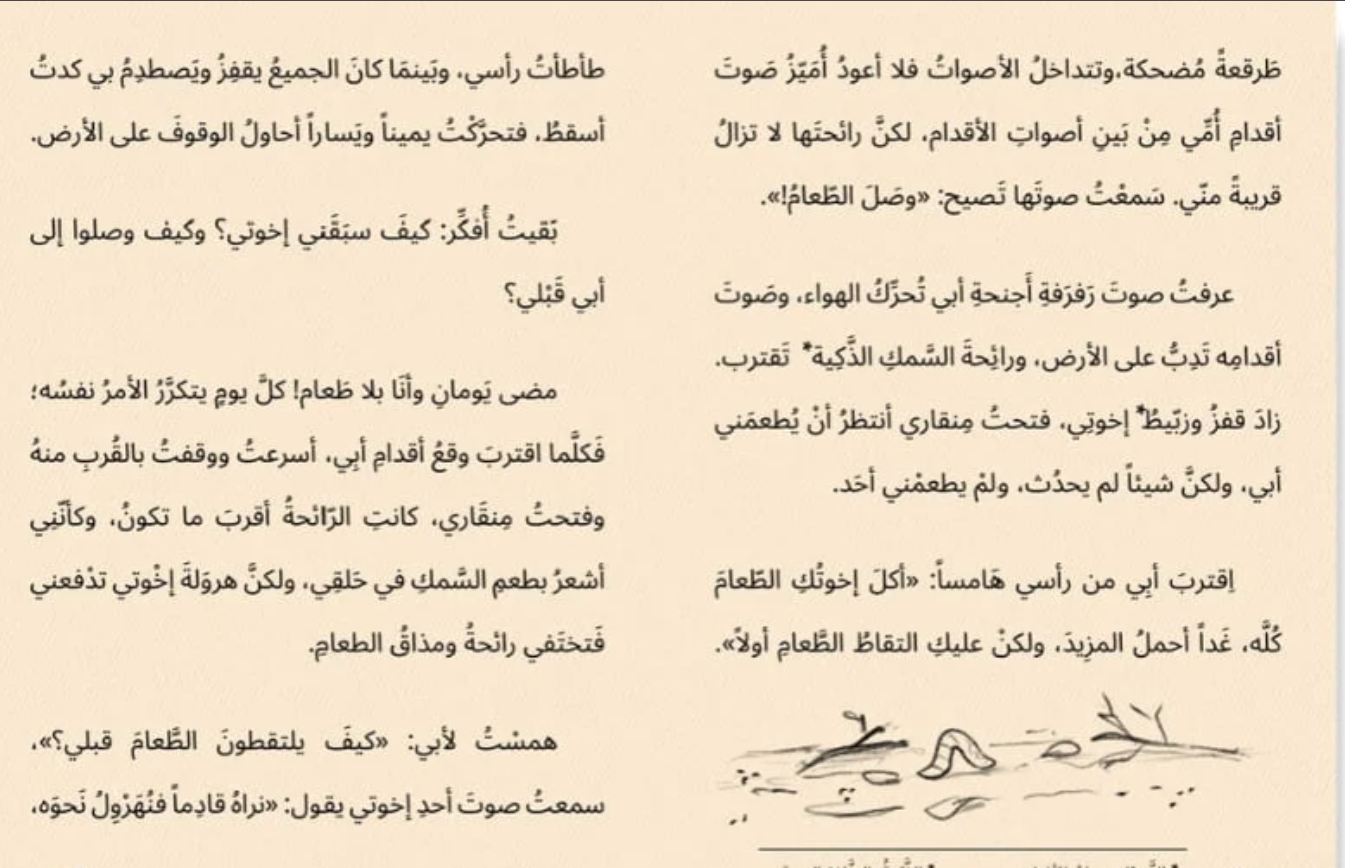 طَرقعةً مُضحكة،وتتداخلُ الأصواتُ فلا أعودُ أُمَيّزُ صَوتَ
أقدامِ أُمِّي مِنْ بَينِ أصواتِ الأقدام، لكنَّ رائحتَها لا تزالُ
قريبةً منّي. سَمعْتُ صوتَها تَصيح: «وصَلَ الطّعامُ!».
عرفتُ صوتَ رَفرَفةِ أَجنحةِ أبي تُحرِّكُ الهواء، وصَوتَ
أقدامِه تَدِبُّ على الأرض، ورائِحةَ السَّمكِ الذَّكِية* تَقترب.
زادَ قفزُ وزبّيطُ* إخوتِي، فتحتُ مِنقاري أنتظرُ أنْ يُطعمَني
أبي، ولكنَّ شيئاً لم يحدُث، ولمْ يطعمْني أحَد.
اِقتربَ أبِي من رأسي هَامساً: «أكلَ إخوتُكِ الطّعامَ
كُلَّه، غَداً أحملُ المزِيدَ، ولكنْ عليكِ التقاطُ الطَّعامِ أولاً».
طأطأتُ رأسي، وبَينمَا كانَ الجميعُ يقفِزُ ويَصطدِمُ بي كدتُ
أسقطُ، فتحرَّكْتُ يميناً ويَساراً أحاولُ الوقوفَ على الأرض.
بَقيتُ أُفكِّر: كيفَ سبَقَني إخوتي؟ وكيف وصلوا إلى
أبي قَبْلي؟
مضى يَومانِ وأنَا بلا طَعام! كلَّ يومٍ يتكرَّرُ الأمرُ نفسُه؛
فَكلَّما اقتربَ وقعُ أقدامِ أبِي، أسرعتُ ووقفتُ بالقُربِ منهُ
وفتحتُ مِنقَاري، كانتِ الرّائحةُ أقربَ ما تكونُ، وكأنّنِي
أشعرُ بطعمِ السَّمكِ في حَلقِي، ولكنَّ هروَلةَ إخْوتي تدْفعني
فَتختَفي رائحةُ ومذاقُ الطعامِ.
همسْتُ لأبي: «كيفَ يلتقطونَ الطَّعامَ قبلي؟»،
سمعتُ صوتَ أحدِ إخوتي يقول: «نراهُ قادِماً فنُهَرْوِلُ نَحوَه،